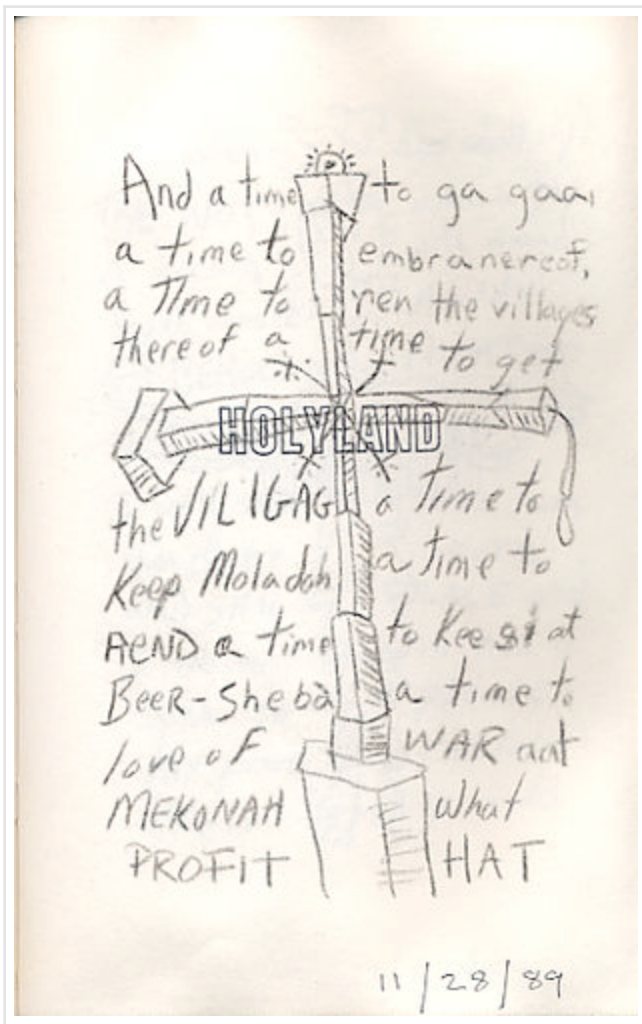 And a time to ga gaai
a time to embranereof,
a Time to ren the villages
there of a time to get
HOLYLAND
the VILIGAG a Time to
Keep Moladah a time to
AEND a time to Kee at
BeeR-Sheba a time to
love of WAR aat
MEKONAH what
PROFIT HAT
11/28/89